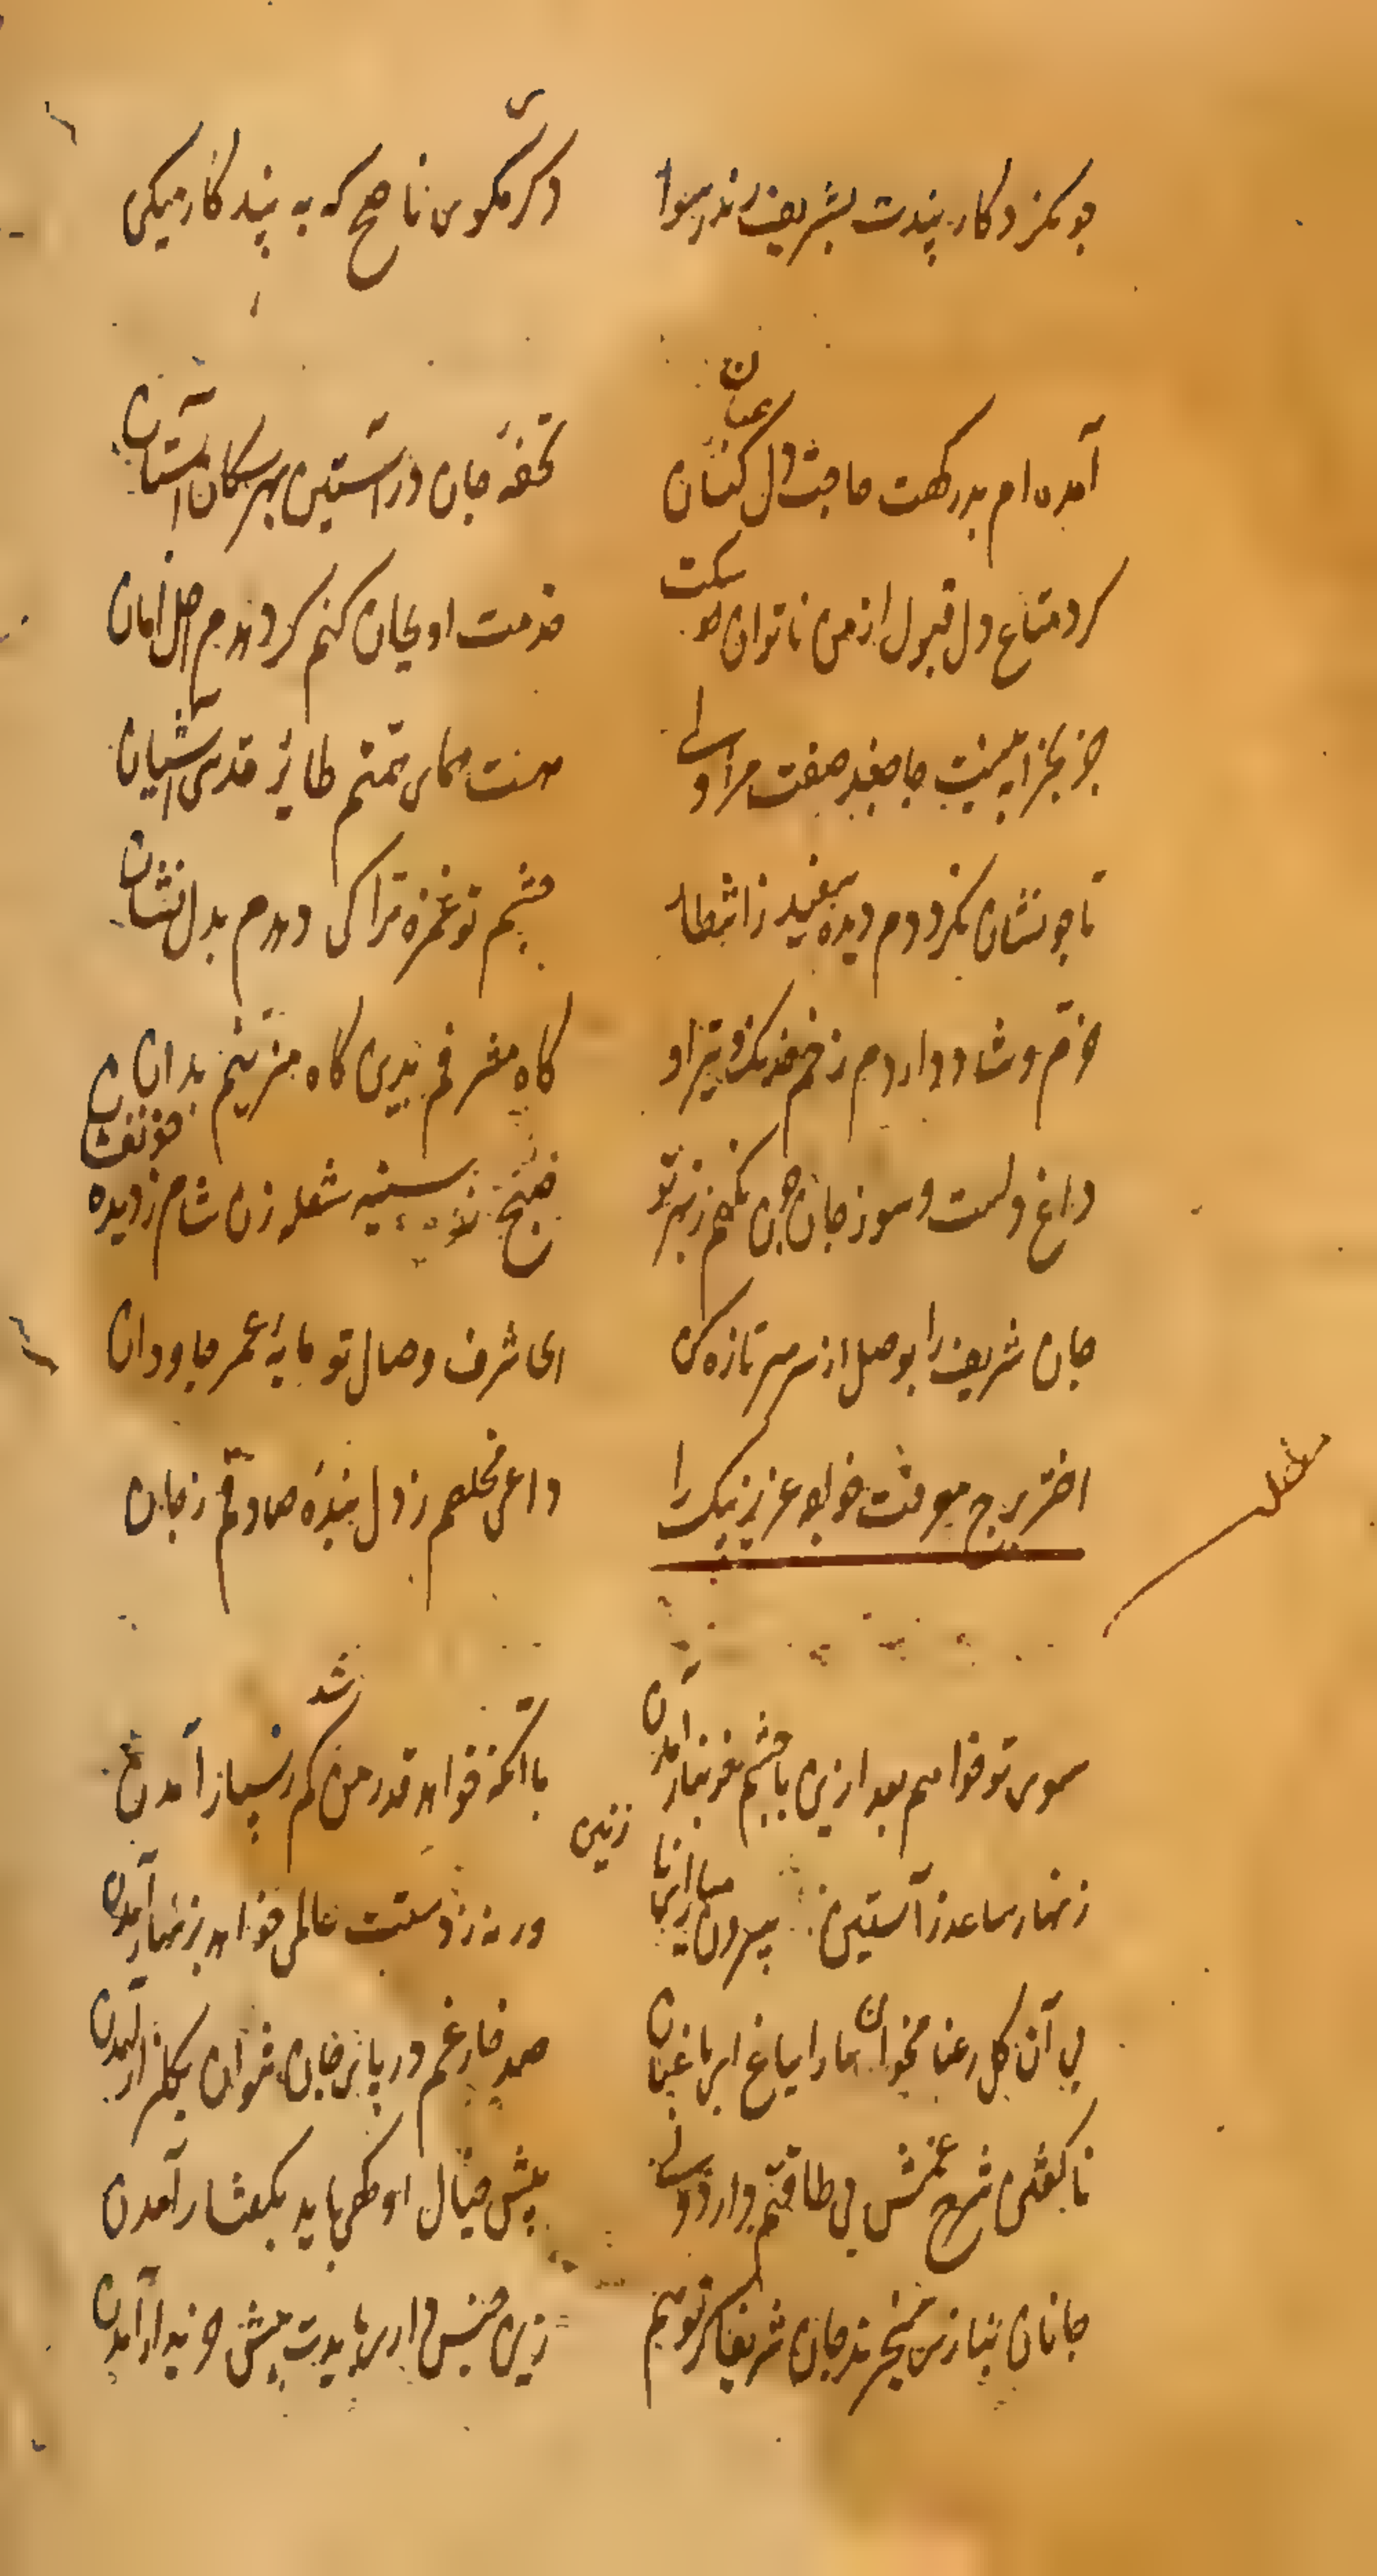 چو نکرد کار پندت بشریف رند رسوا
دگرش مگوی ناصح که به پند کار میکی
آمده ام بدرگهت حاجت دل کنان عیان
تحفهٔ جان در آستین بهر سگان آستان
کرد متاع دل قبول از من ناتوان سکت
خدمت او بجان کنم گر دهدم اجل امان
جز بخرابه نیست جا جغد صفت مرا ولی
هست همای همتم طایر قدس آشیان
تا چو نشان نکرددم دیده سفید ز انتظار
چشم تو غمزه ترا کی دهدم بدل نشان
خرم و شاد دواردم زخم خدنک و تیر او
کاه مشرفم بدین کاه مزینم بدان
داغ دلست و سوز جان چون نکهم ز تو
صبح ز سینه شعله زن شام ز دیده خونفشان
جان شریف را بوصل از سر مهر تازه کن
ای شرف وصال تو مایهٔ عمر جاودان
اختر برج معرفت خواجو عزیز بیک را
داعی مخلصم ز دل بندهٔ صادقم ز جان
سوی تو خواهم بعد ازین با چشم خونبار آمدن
با آنکه خواهد قدر من کم شد ز بسیار آمدن
زنهار ساعد ز آستین بیرون میار ای نازنین
ورنه ز دستت عالمی خواهد بزنهار آمدن
بی آن کل رعنا مخوان ما را بباغ ای باغبان
صد خار غم در پای جان نتوان بکلزار آمدن
نا گفتن شرح غمش بی طاقتم دارد ولی
پیش خیال او کهی باید بگفتار آمدن
جانان بناز من بخر جان شریفا گر توهم
زین جنس داری بایدت پیش خریدار آمدن